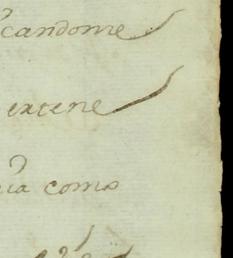 candome
extene
ia como